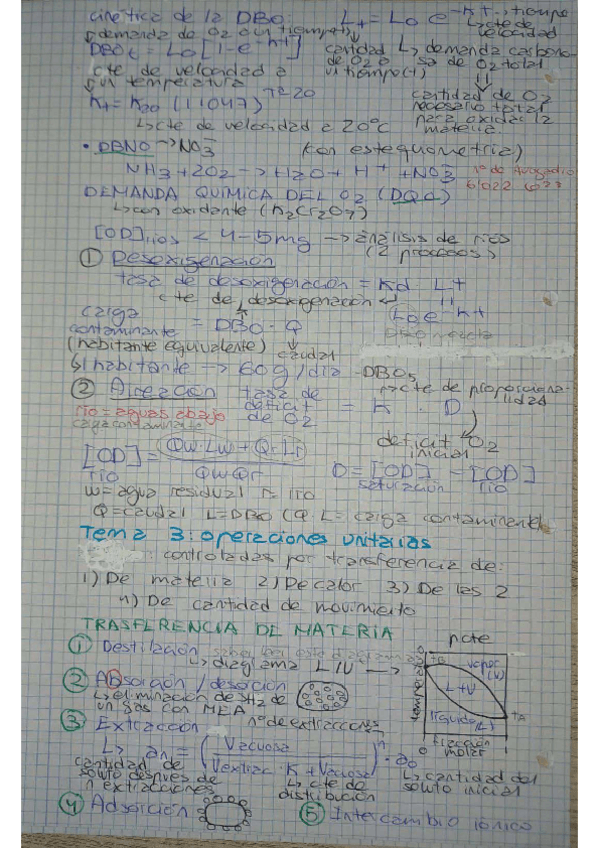 cinética de la DBO: Lt = Lo e^-Kt → tiempo
↳ cte de velocidad
↓ demanda de O2 a un tiempo(t)
DBOt = Lo [1-e^-Kt]
cantidad de O2 a un tiempo(t)
↳ demanda carbonosa de O2 total
cte de velocidad a un temperatura
cantidad de O2 necesario total para oxidar la materia.
Kt = K20 (1'1047)^T-20
↳ cte de velocidad a 20ºC
• DBNO → NO3^- (con estequometria)
NH3 + 2O2 → H2O + H+ + NO3^-
nº de Avogadro 6'022 · 10^23
DEMANDA QUIMICA DEL O2 (DQO)
↳ con oxidante (K2Cr2O7)
[OD]rios < 4-5mg → análisis de ríos (2 procesos)
① Desoxigenación
tasa de desoxigenación = Kd · Lt
cte de desoxigenación ↵
Lo e^-Kt
carga contaminante = DBO · Q
(habitante equivalente) caudal
↳ 1 habitante → 60g/día - DBO5
② Aireación
tasa de deficit de O2 = K · D
↳ cte de proporcionalidad
río = aguas abajo
carga contaminante
deficit O2 inicial
[OD]río = Qw·Lw + Qr·Lr / QwQr
D = [OD]saturación - [OD]río
w = agua residual r = río
Q = caudal L = DBO (Q·L = carga contaminante)
Tema 3: operaciones unitarias
: controladas por transferencia de:
1) De materia 2) De calor 3) De las 2
4) De cantidad de movimiento
TRASFERENCIA DE MATERIA
① Destilación
↳ diagrama L/V →
pcte
vapor (V)
L+V
líquido (L)
temperatura
fracción molar
② Absorción / desorción
↳ eliminación de SH2 de un gas con MEA
③ Extracción nº de extracciones
↳ an = (Vacuosa / Vextrac · K + Vacuosa)^n · a0
cantidad de soluto despues de n extracciones
↳ cte de distribución
↳ cantidad del soluto inicial
④ Adsorción
⑤ Intercambio iónico